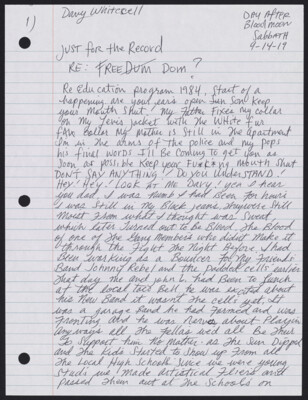 1)
Davy Whitcoell
Day After
Bloodmoon
Sabbath
9-14-19
Just for the Record
RE: FREEDUM DOM?
Re Education program 1984, Start of a
happening are your ears open Jun Son Keep
your Mouth Shut! My Father Fixes my collar
on My Levis jacket with the white fur
Fake Collar My Mother is Still in the apartment
I'm in the arms of the police and my pops
his final words I'll Be Coming to get you as
Soon as possible Keep your Fuck*n mouth That
DON'T SAY ANYTHING! Do you UNDERSTAND!
Hey! Hey! Look at Me Davy! yea I hear
you dad, I was Numb I had been for hours
I was Still in my Black jeans. They were Still
Moist From what I thought was Sweat
which later Turned out to be Blood. The Blood
of one of The Gang Members who didnt Make it
through the Fight The Night Before. I had
Been working as a Bouncer for My Friends
Band Johnny Kohel and the padded cells earlier
That day me and John K. had Been to lunch
at the local Taco Bell, he was excited about
his New Band it wasn't The cells yet. It
was a garage Band he had Formed and was
Fronting and he was Nervous about playing
Anyways all The Fellas will all Be There
to Support him No Matter. as The Sun Dipped
and The Kids Started to Show up From all
The Local High Schools Since we were young
Magi we Made artistical Fliers and
passed Them out at The Schools on